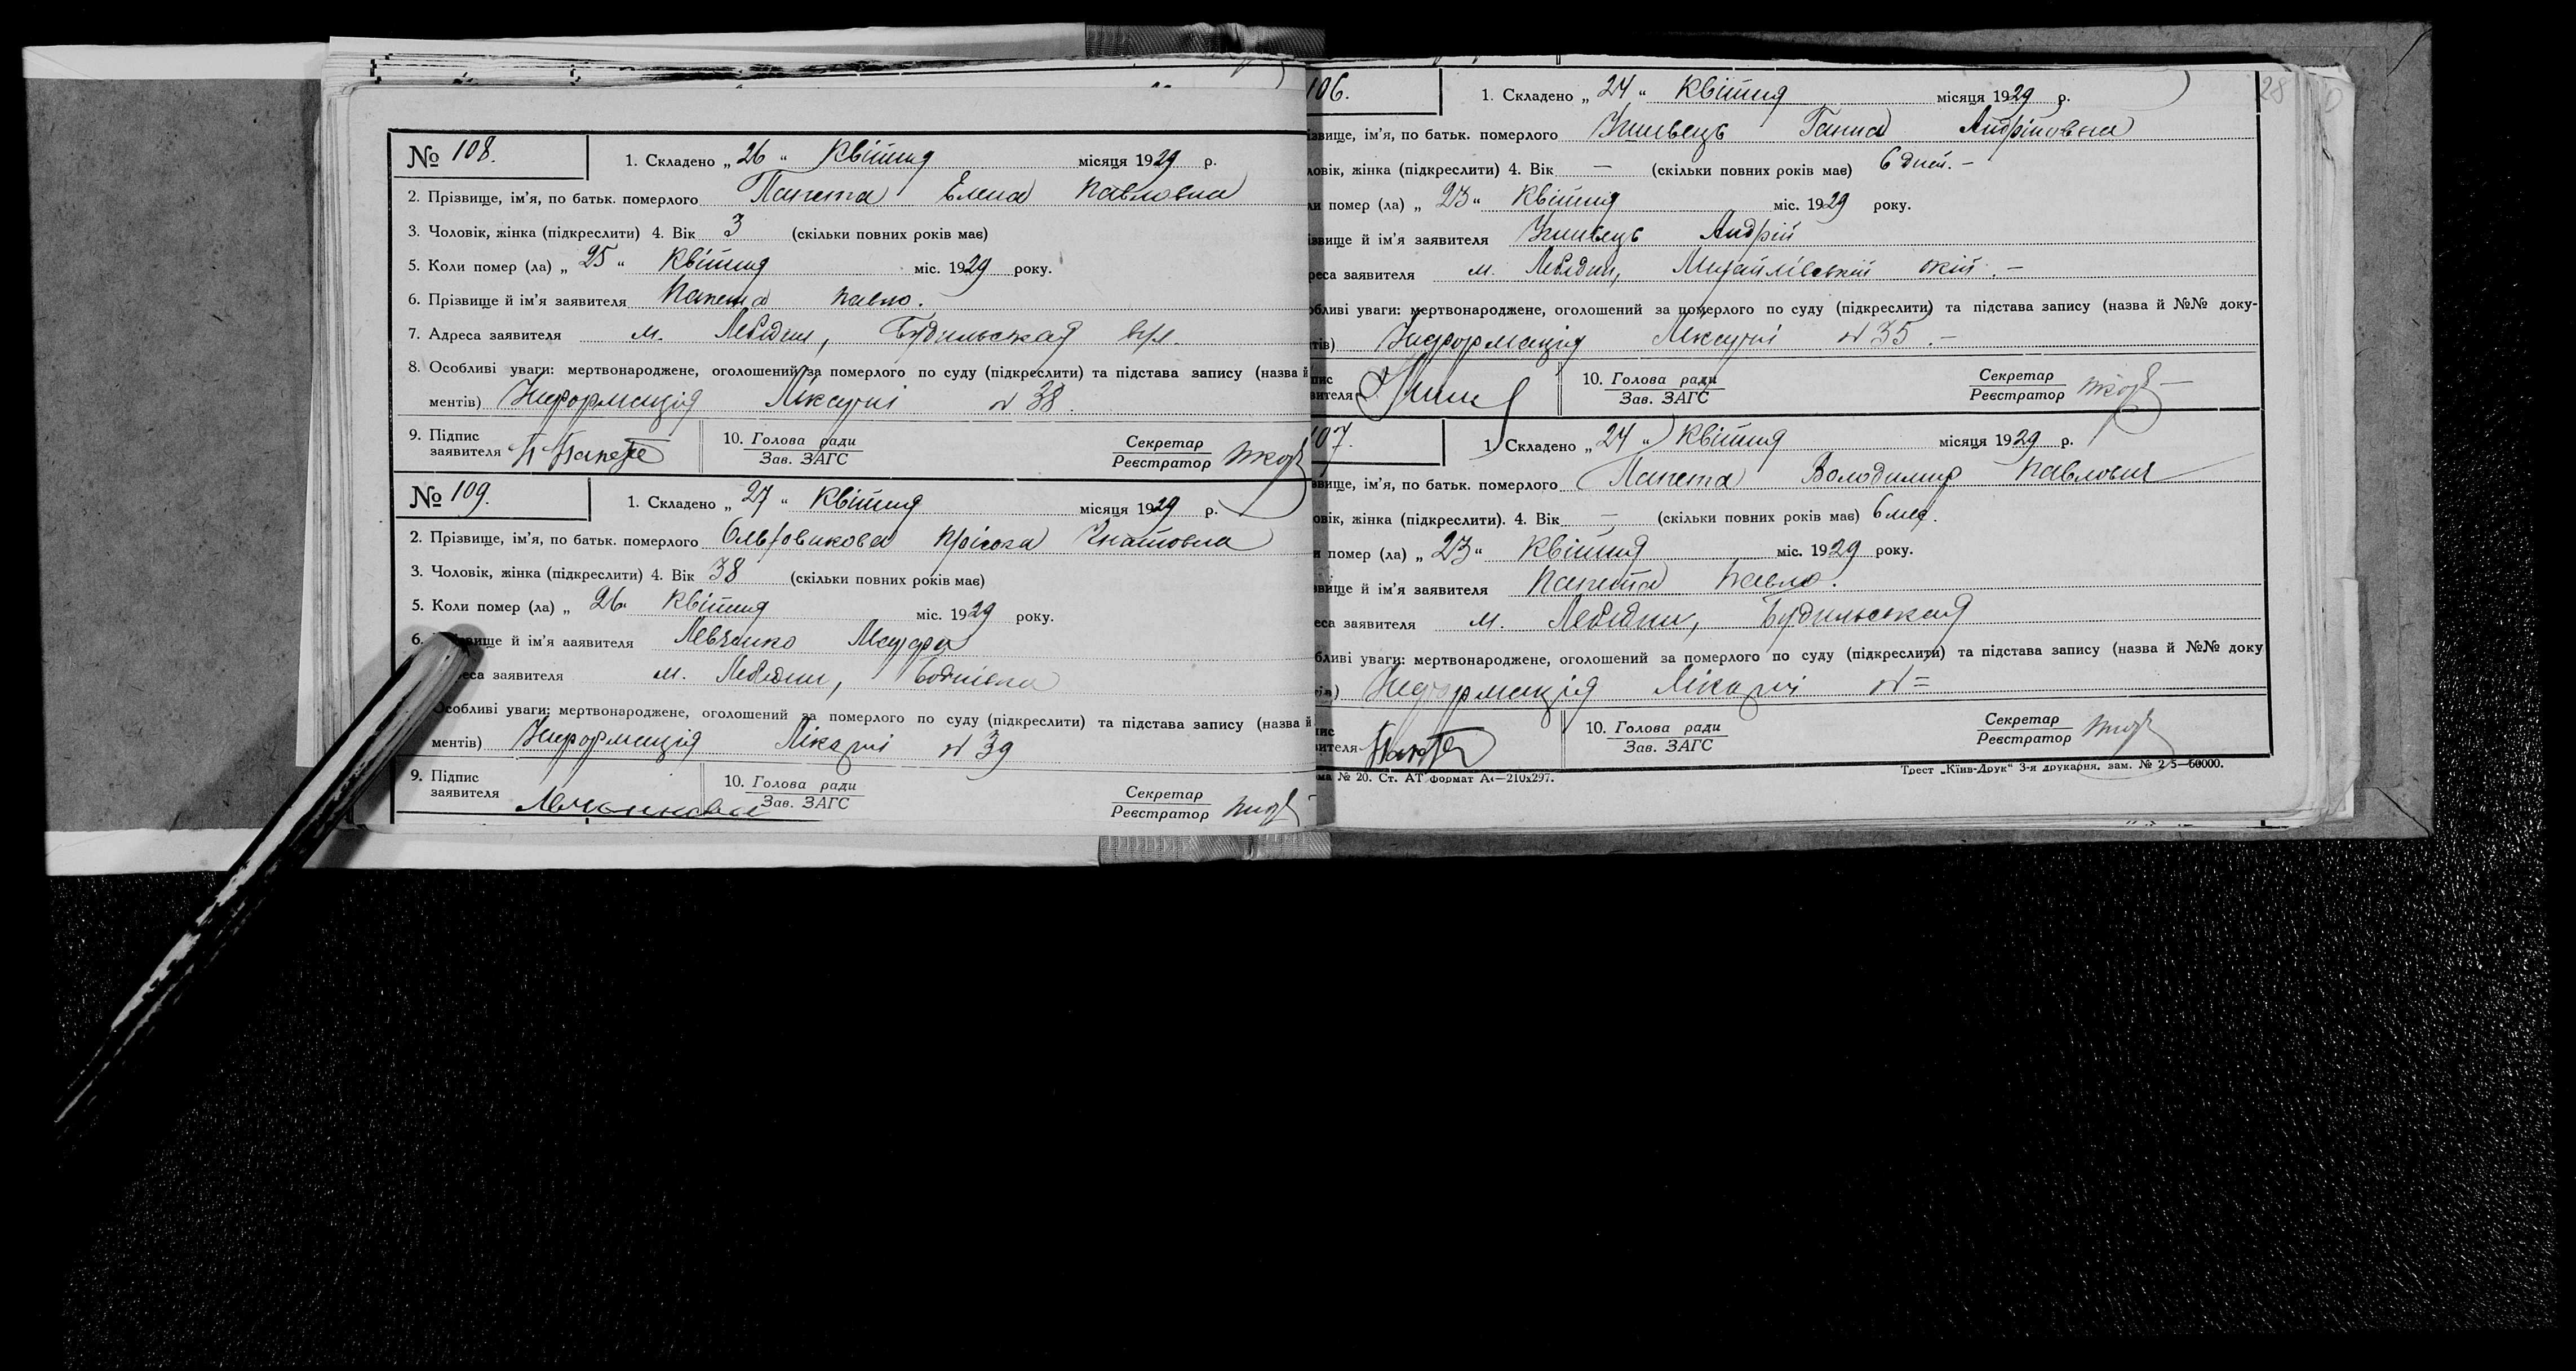 № 108.
1. Складено „ 26 “ Квітня місяця 1929 р.
2. Прізвище, ім'я, по батьк. померлого Папета Елена Павловна
3. Чоловік, жінка (підкреслити) 4. Вік 3 (скільки повних років має)
5. Коли помер (ла) „ 25 “ Квітня міс. 1929 року.
6. Прізвище й ім'я заявителя Папета Павло.
7. Адреса заявителя м. Лебедин, Будильская вул.
8. Особливі уваги: мертвонароджене, оголошений за померлого по суду (підкреслити) та підстава запису (назва й
ментів) Информація Лікарні № 38.
9. Підпис
заявителя
10. Голова ради
Зав. ЗАГС
Секретар
Реєстратор
№ 109.
1. Складено „ 27 “ Квітня місяця 1929 р.
2. Прізвище, ім'я, по батьк. померлого Игнатовна
3. Чоловік, жінка (підкреслити) 4. Вік 38 (скільки повних років має)
5. Коли помер (ла) „ 26 “ Квітня міс. 1929 року.
6. й ім'я аявителя Левченко
заявителя м. Лебедин,
Особливі уваги: мертвонароджене, оголошений за померлого по суду (підкреслити) та підстава запису (назва й
ментів) Информація Лікарні № 39
9. Підпис
заявителя
10. Голова ради
Зав. ЗАГС
Секретар
Реєстратор
28
106.
1. Складено „ 24 “ Квітня місяця 1929 р.
звище, ім'я, по батьк. померлого Ганна Андріповна
ловік, жінка (підкреслити) 4. Вік — (скільки повних років має) 6 дней. –
ли помер (ла) „ 23 “ Квітня міс. 1929 року.
звище й ім'я заявителя Андрій
реса заявителя м. Лебедин, Михайлівський
обливі уваги: мертвонароджене, оголошений за померлого по суду (підкреслити) та підстава запису (назва й №№ доку-
тів) Информація Лікарні № 35. –
пис
вителя
10. Голова ради
Зав. ЗАГС
Секретар
Реєстратор
107.
1. Складено „ 24 “ Квітня місяця 1929 р.
звище, ім'я, по батьк. померлого Папета Володимир Павлович
овік, жінка (підкреслити). 4. Вік — (скільки повних років має) 6 мес.
и помер (ла) „ 23 “ Квітня міс. 1929 року.
звище й ім'я заявителя Папета Павло.
еса заявителя м. Лебедин, Будильская
бливі уваги: мертвонароджене, оголошений за померлого по суду (підкреслити) та підстава запису (назва й №№ доку
тів) Информація Лікарні № =
пис
вителя
10. Голова ради
Зав. ЗАГС
Секретар
Реєстратор
ма № 20. Ст. АТ формат А4—210х297.
Трест „Київ-Друк“ 3-я друкарня, зам. № 2 5—60000.